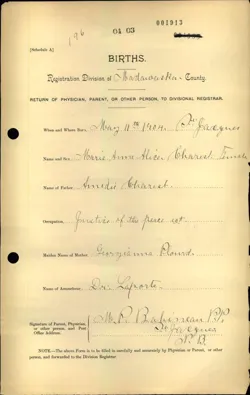 001913
196
04 03
[Schedule A]
BIRTHS.
Registration Division of Madawaska County.
RETURN OF PHYSICIAN, PARENT, OR OTHER PERSON, TO DIVISIONAL REGISTRAR.
When and Where Born, May 11th 1904. St Jacques
Name and Sex, Marie Anne Alice Charest Female
Name of Father, Amédé Charest
Occupation, Justice of the peace
Maiden Name of Mother, Georgianna Plourd
Name of Accoucheur, Dr. Laporte
Signature of Parent, Physician,
or other person, and Post
Office Address.
St Jacques
N. B.
NOTE.—The above Form is to be filled in carefully and accurately by Physician or Parent, or other
person, and forwarded to the Division Registrar.